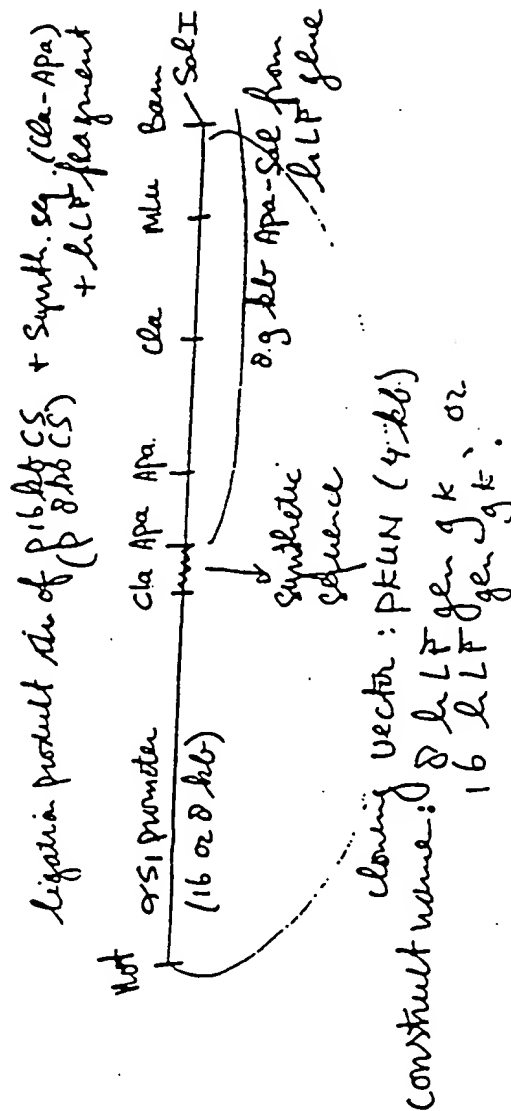 ligation product of p16kbCS + Synth. seq. (Cla-Apa)
(p 8kbCS) + hLF fragment
Not Cla Apa Apa Cla Mlu Bam
Sal I
αS1 promoter
(16 or 8 kb)
Synthetic
sequence
0.9 kb Apa-Sal from
hLF gene
cloning vector: pKUN (4 kb)
Construct name: 8 hLF gen 9k, or
16 hLF gen 9k.